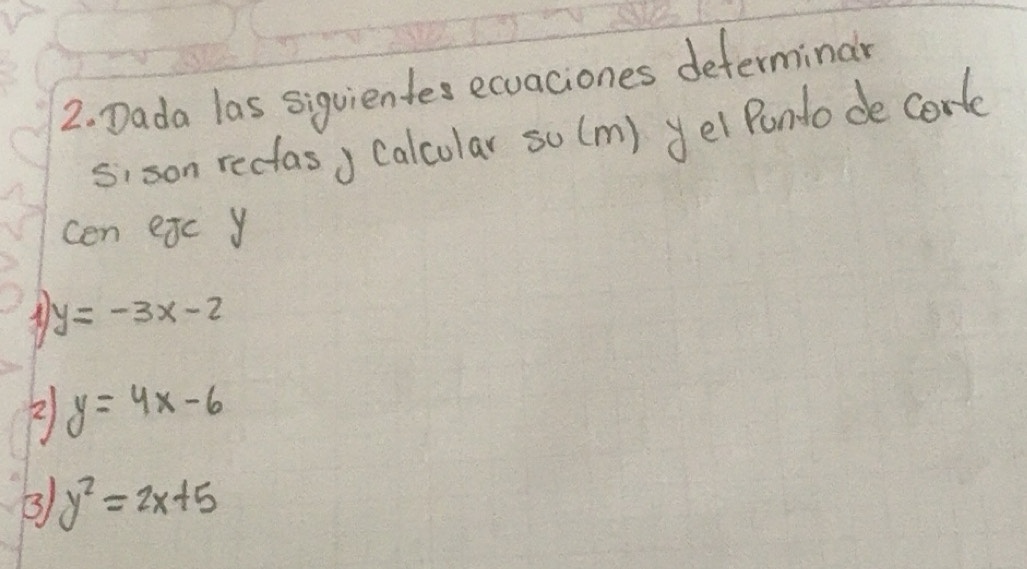 2. Dada las siguientes ecuaciones determinar
si son rectas y calcular su (m) y el Punto de corte
con eje y
1) y = -3x - 2
2) y = 4x - 6
3) y² = 2x + 5